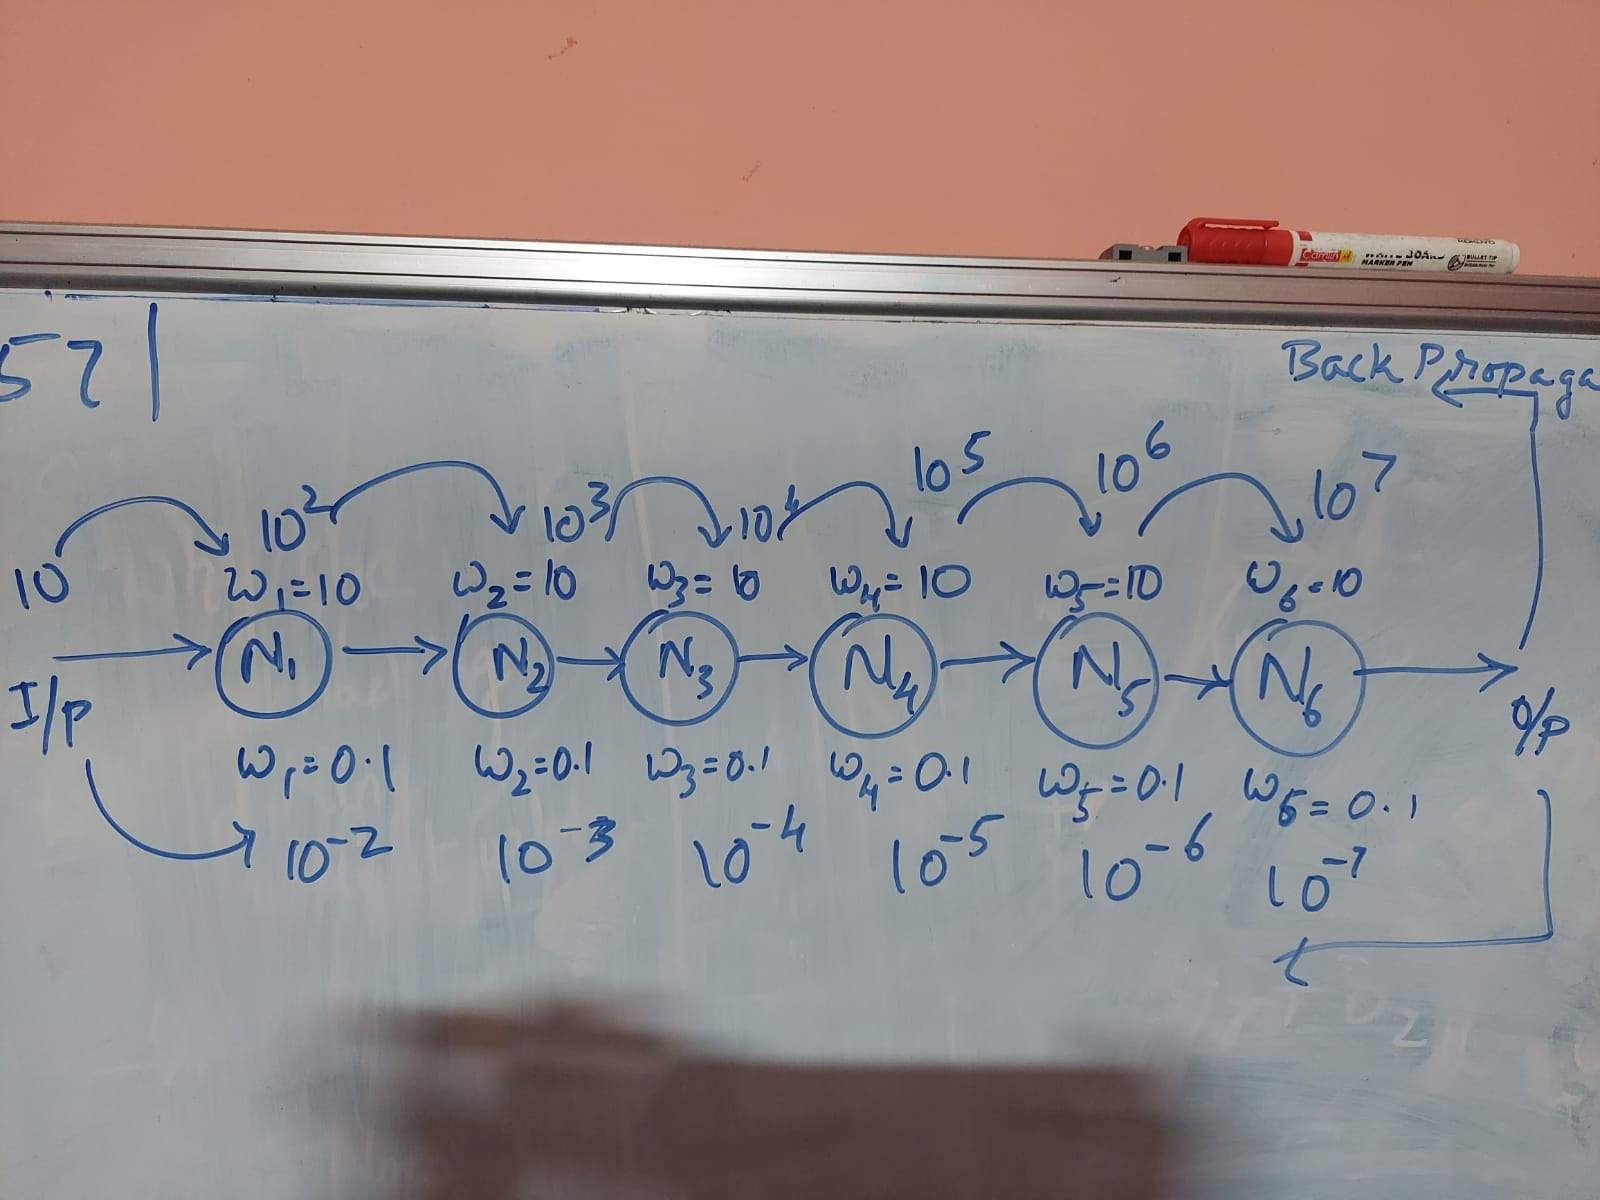 Camlin
WHITE BOARD
MARKER PEN
BULLET TIP
57 |
Back Propaga
10⁵ 10⁶ 10⁷
10² 10³ 10⁴
10 w₁=10 w₂=10 w₃=10 w₄=10 w₅=10 w₆=10
N₁ N₂ N₃ N₄ N₅ N₆
I/P O/P
w₁=0.1 w₂=0.1 w₃=0.1 w₄=0.1 w₅=0.1 w₆=0.1
10⁻² 10⁻³ 10⁻⁴ 10⁻⁵ 10⁻⁶ 10⁻⁷